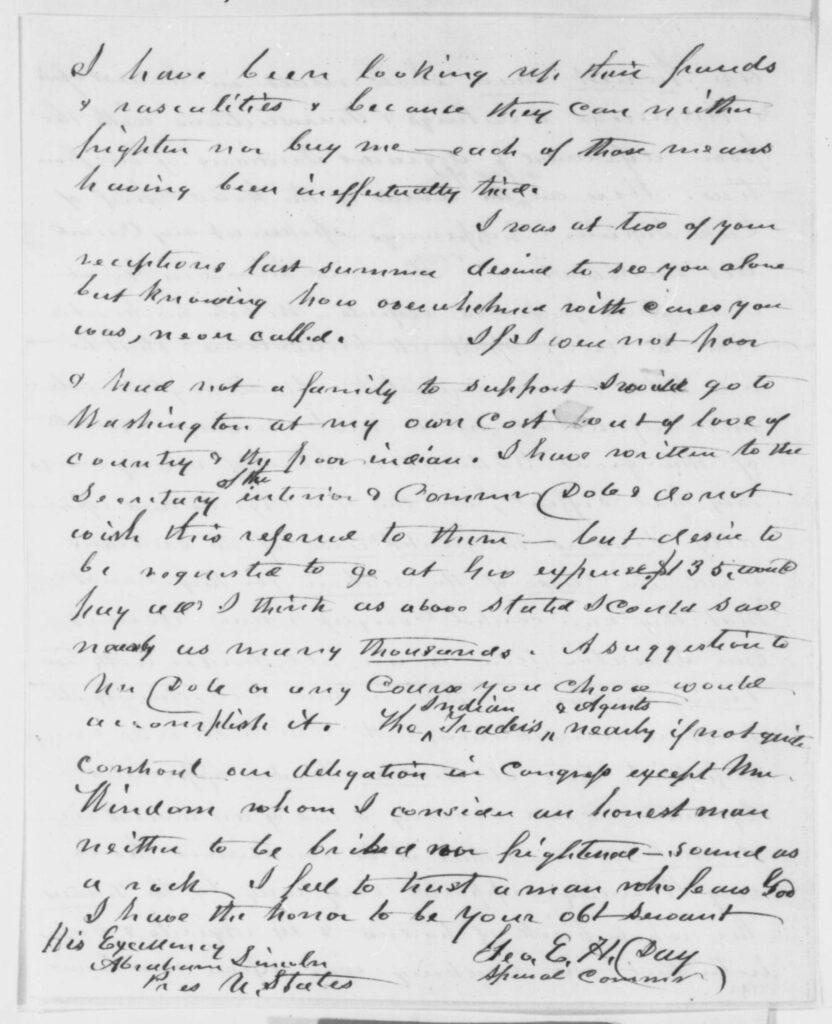 I have been looking up their frauds
& rascalities & because they can neither
frighten nor buy me — each of those means
having been ineffectually tried.
I was at two of your
receptions last summer desired to see you alone
but knowing how overwhelmed with cares you
was, never called. If I were not poor
& had not a family to support I would go to
Washington at my own cost out of love of
country & the poor indian. I have written to the
Secretary of the interior & Commr Dole & do not
wish this referred to them — but desire to
be requested to go at Gov expense. $135. would
pay all & I think as above stated I could save
nearly as many thousands. A suggestion to
Mr Dole or any Course you choose would
accomplish it. The Indian Traders & Agents nearly if not quite
controul our delegation in Congress except Mr.
Windom whom I consider an honest man
neither to be bribed nor frightened — sound as
a rock. I feel to trust a man who fears God
I have the honor to be your obt servant
His Excellency
Abraham Lincoln
Pres U. States
Geo. E. H. Day
Special Commr